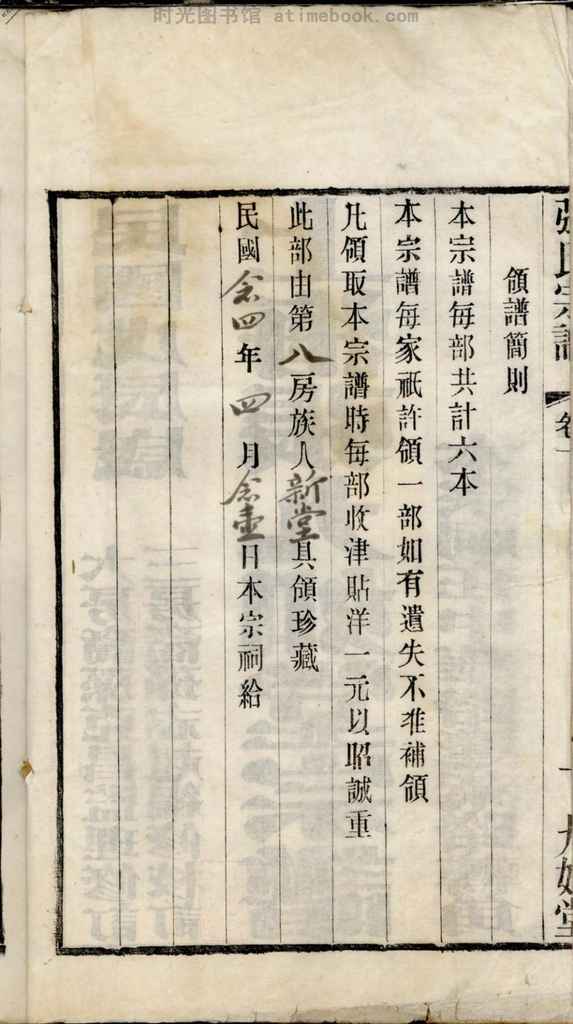 时光图书馆 atimebook.com
領譜簡則
本宗譜每部共計六本
本宗譜每家祇許領一部如有遺失不准補領
凡領取本宗譜時每部收津貼洋一元以昭誠重
此部由第八房族人新堂具領珍藏
民國念四年四月念壹日本宗祠給